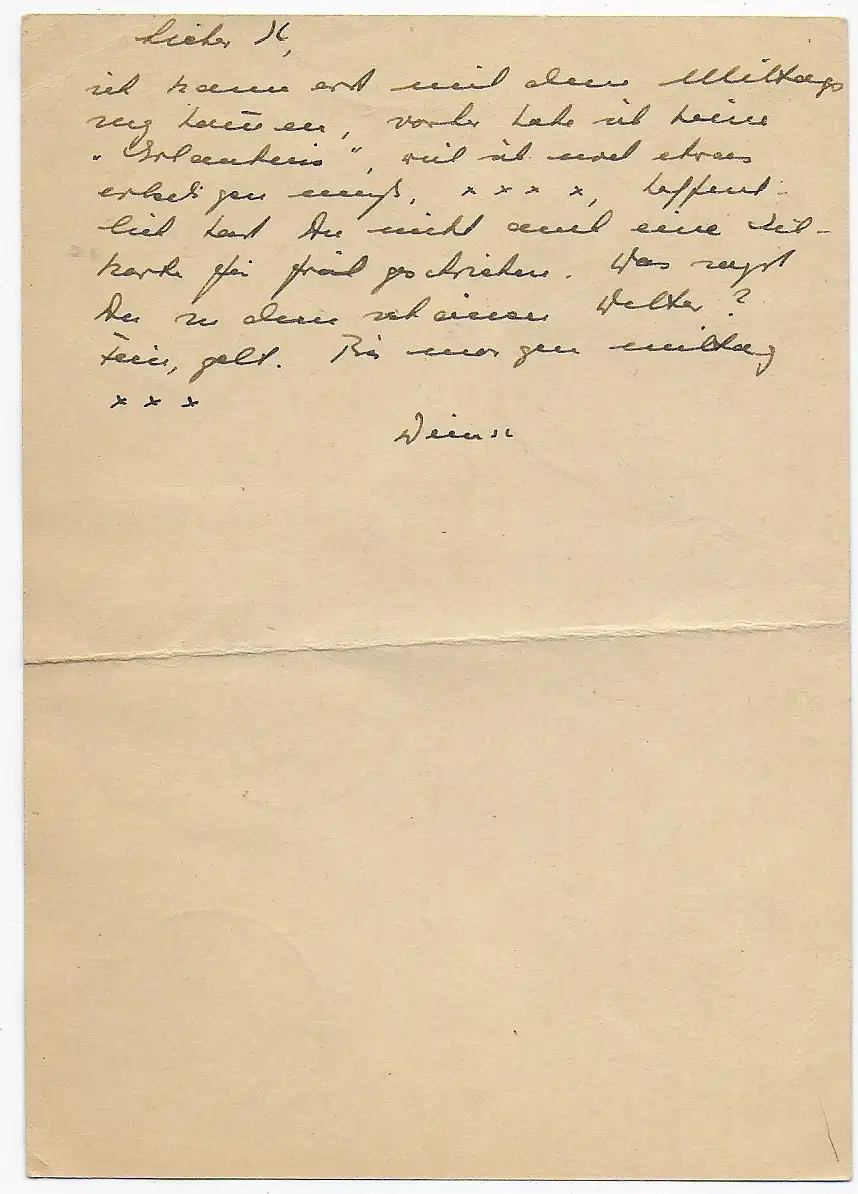 Lieber H,
ich kann erst mit dem Mittags
zug kommen, vorher habe ich keine
"Erlaubnis", weil ich noch etwas
erledigen muß, x x x x, hoffent-
lich hast Du nicht auch eine Eil-
karte für geschrieben. Was sagst
Du zu dem schönen Wetter?
Fein, gelt. Bis morgen mittag
x x x